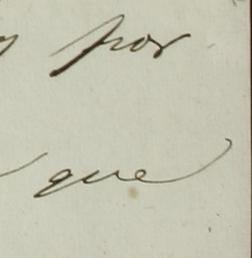 por
que